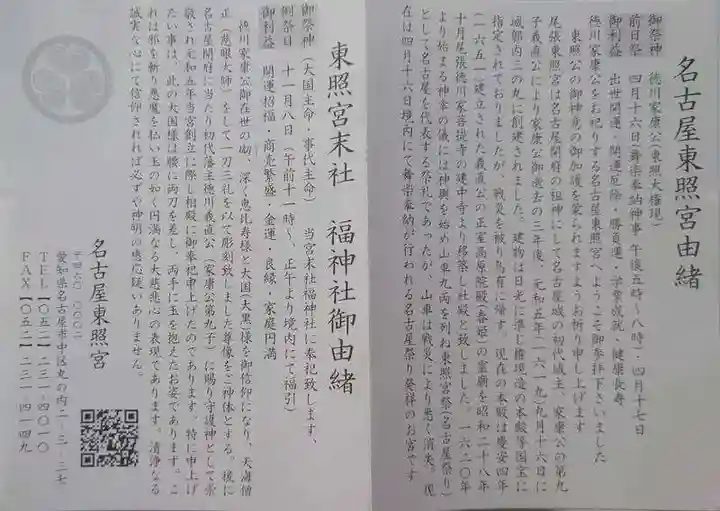 名古屋東照宮由緒
御祭神 徳川家康公(東照大権現)
前日祭 四月十六日(舞楽奉納神事 午後五時~八時)・四月十七日
御利益 出世開運・開運厄除・勝負運・学業成就・健康長寿
徳川家康公をお祀りする名古屋東照宮へようこそ御参拝下さいました
東照公の御神意の御加護を蒙られますようお祈り申し上げます
尾張東照宮は名古屋開府の祖神にして名古屋城の初代城主、家康公の第九
子義直公により家康公御逝去の三年後、元和五年(一六一九)九月十六日に
城郭内三の丸に創建されました。建物は日光に準じ権現造の本殿等国宝に
指定されておりましたが、戦災を被り烏有に帰す。現在の本殿は慶安四年
(一六五一)建立された義直公の正室高原院殿(春姫)の霊廟を昭和二十八年
十月尾張徳川家菩提寺の建中寺より移築し社殿と致しました。一六二〇年
より始まる神幸の儀には神輿を始め山車九両を列ね東照宮祭(名古屋祭り)
として名古屋を代表する祭礼であったが、山車は戦災により悉く消失。現
在は四月十六日境内にて舞楽奉納が行われる名古屋祭り発祥のお宮です
東照宮末社 福神社御由緒
御祭神 (大国主命・事代主命) 当宮末社福神社に奉祀致します。
例祭日 十一月八日(午前十一時~、正午より境内にて福引)
御利益 開運招福・商売繁盛・金運・良縁・家庭円満
徳川家康公御在世の砌、深く恵比寿様と大国(大黒)様を御信仰になり、天海僧
正(慈眼大師)をして一刀三礼を以て彫刻致しました尊像をご神体とする。後に
名古屋開府に当たり初代藩主徳川義直公(家康公第九子)に賜り守護神として崇
敬され元和五年当宮創立に際し相殿に御奉祀申上げたのであります。特に申上げ
たい事は、此の大国様は腰に両刀を差し、両手に玉を抱えたお姿であります。こ
れは邪を斬り悪魔を払い玉の如く円満なる大慈悲心の表現であります。清浄なる
誠実な心にて信仰されれば必ずや神明の感応疑いありません。
名古屋東照宮
〒四六〇-〇〇〇二
愛知県名古屋市中区丸の内二-三-三七
TEL〇五二-二三一-四〇一〇
FAX〇五二-二三一-四一四九